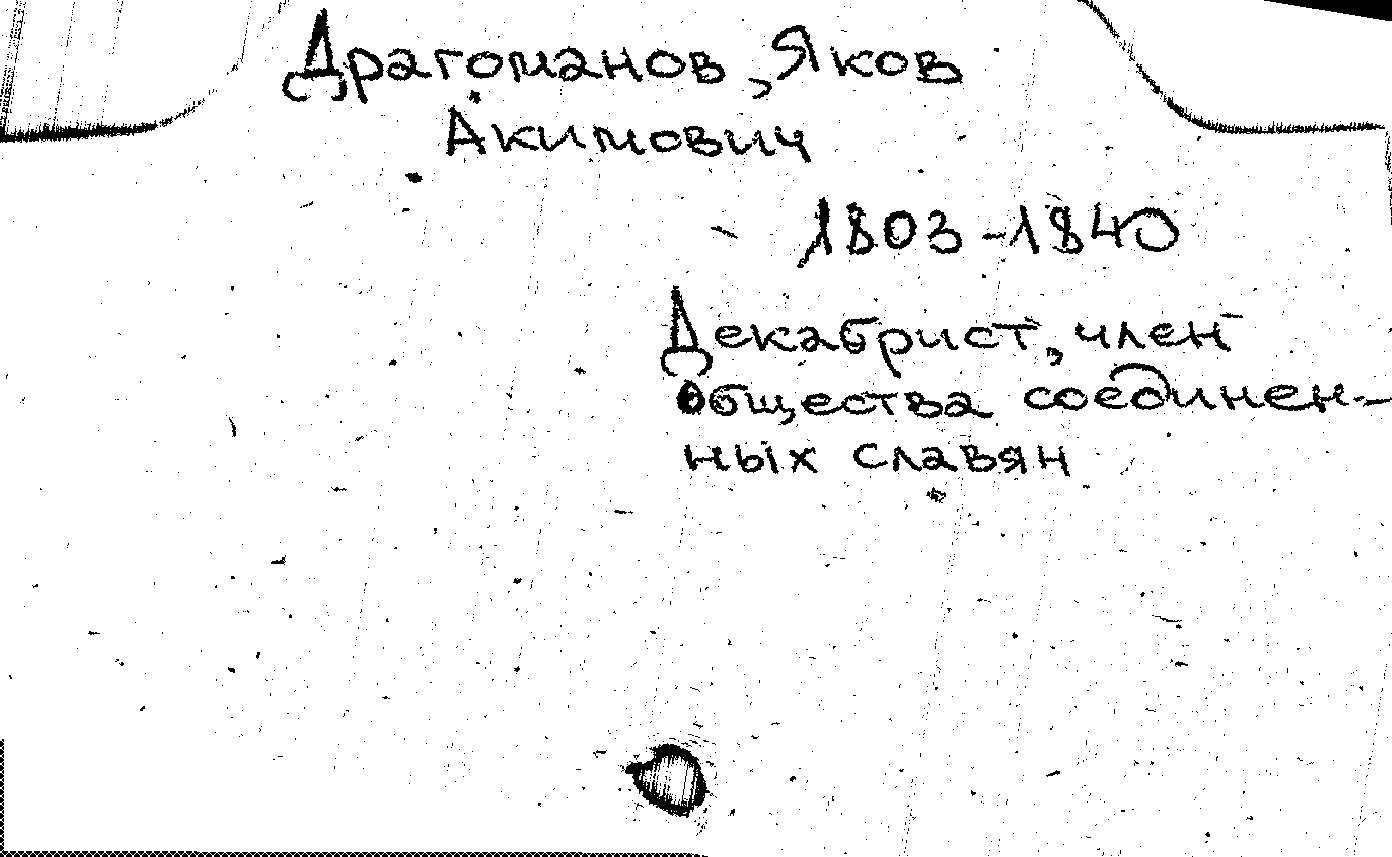 Драгоманов, Яков
Акимович
- 1803-1840
Декабрист, член
Общества соединен-
ных славян